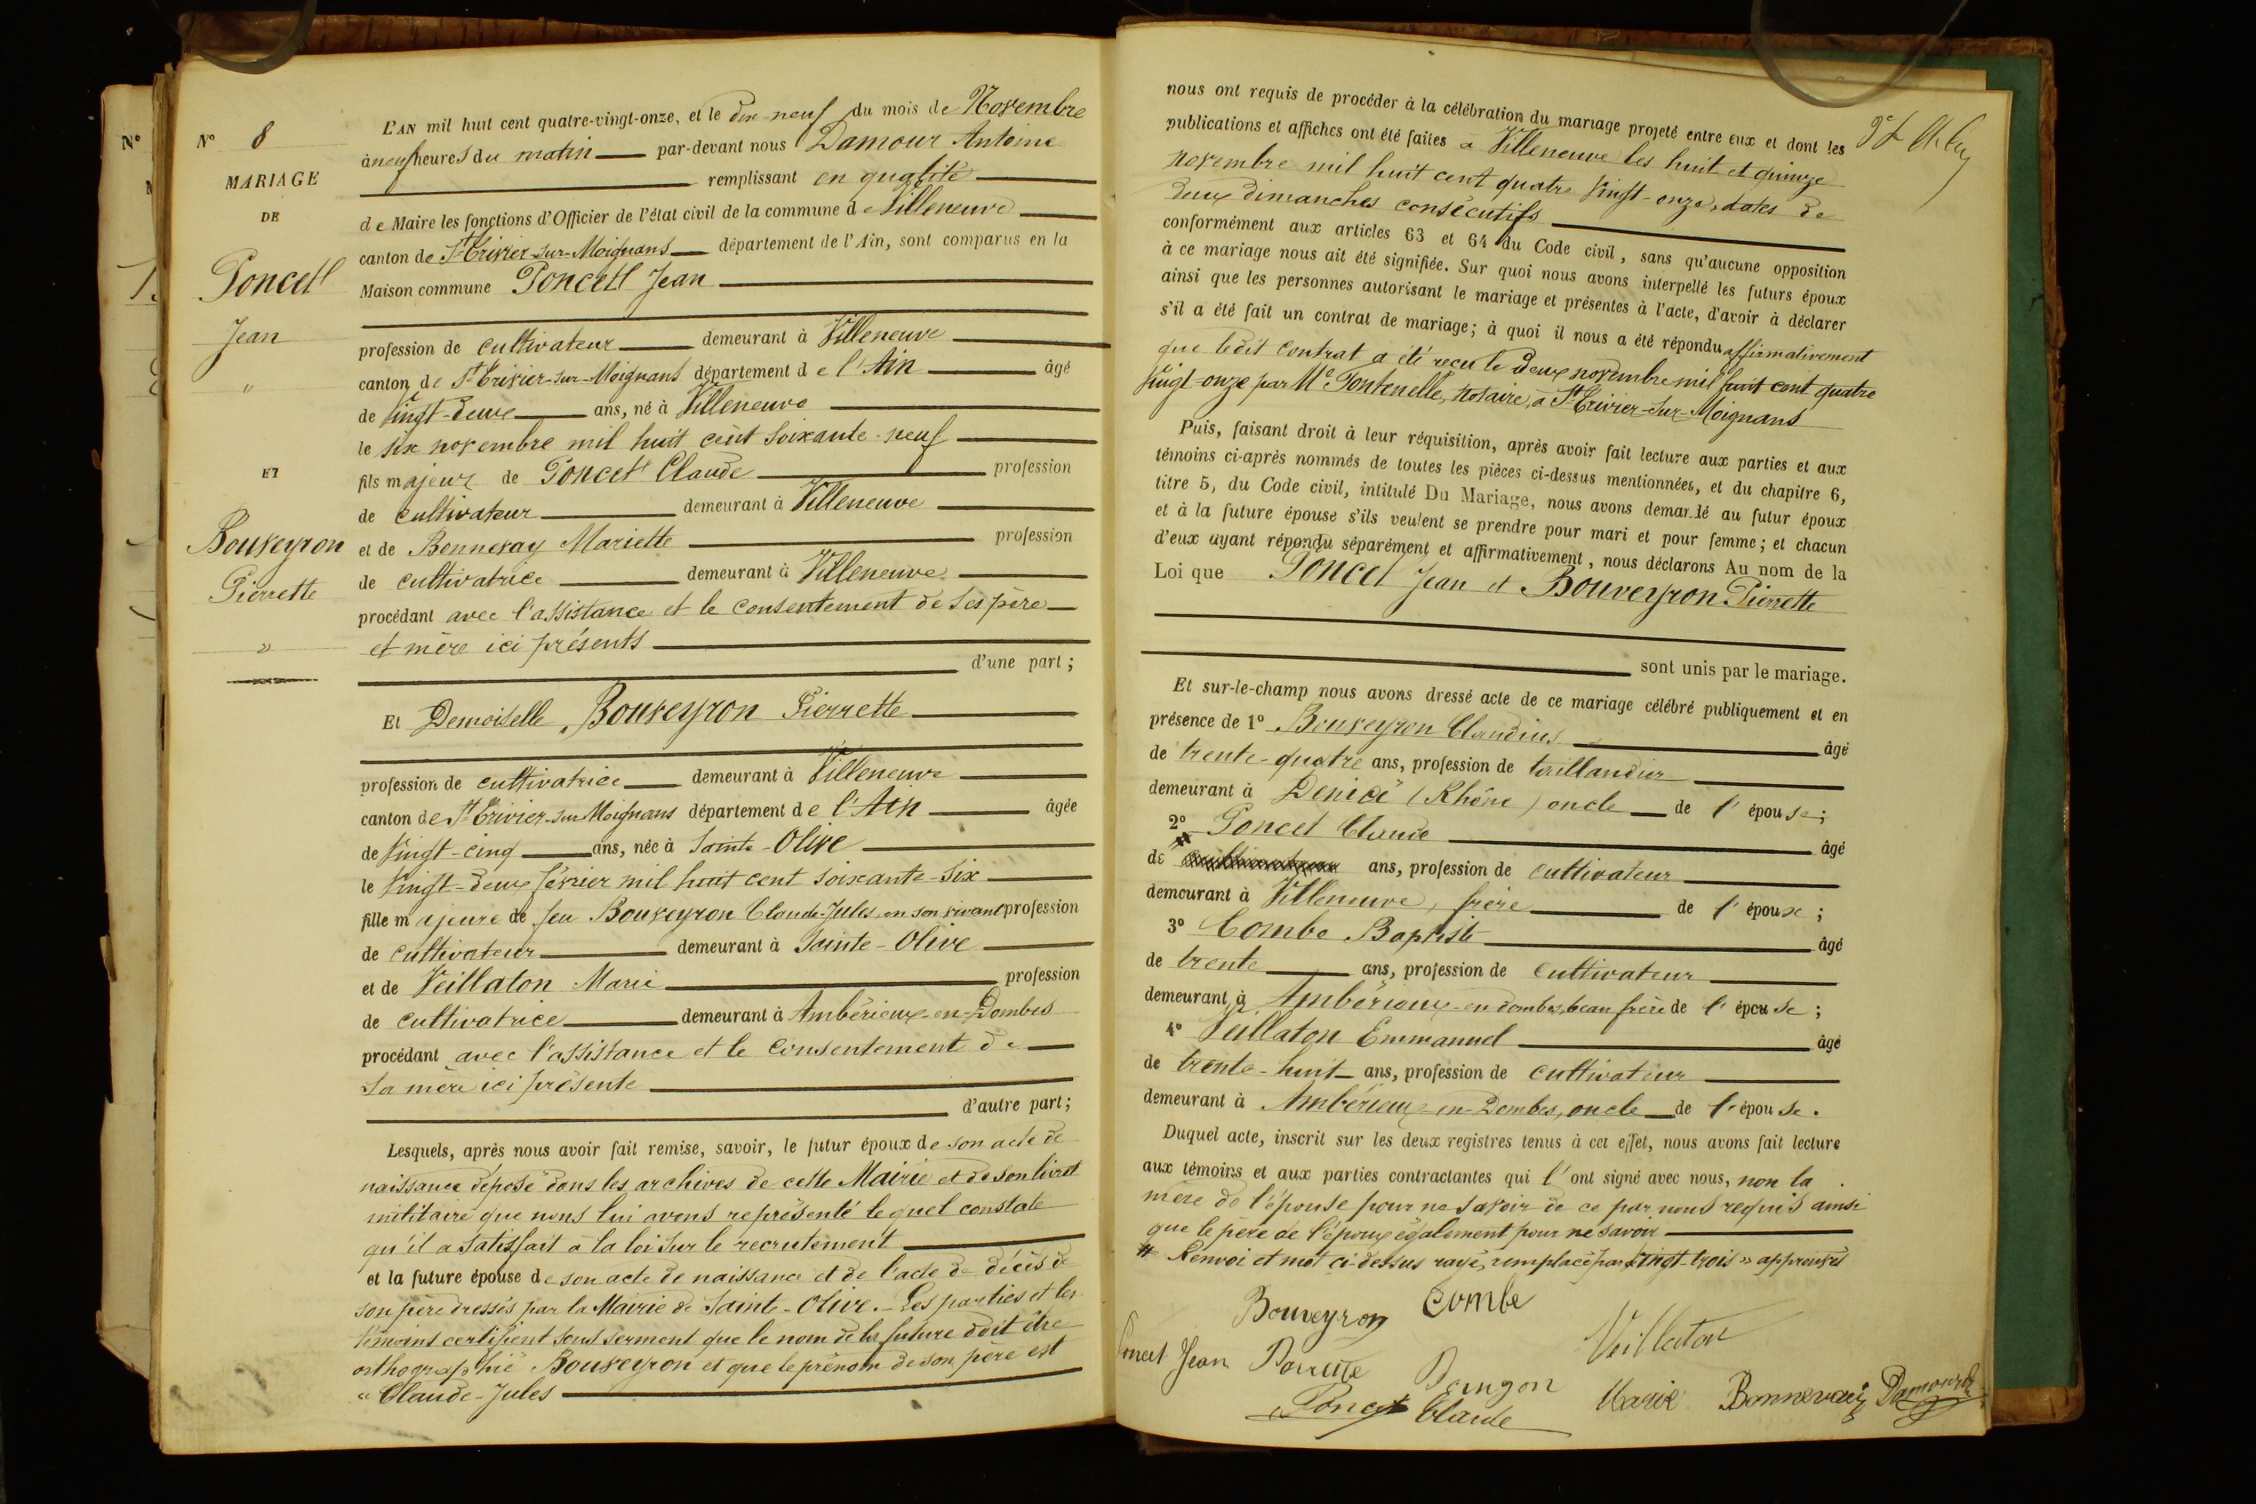 N° 8
MARIAGE
DE
Poncet
Jean
"
ET
Bouveyron
Pierrette
"
L'AN mil huit cent quatre-vingt-onze, et le dix-neuf du mois de Novembre
à neuf heures du matin par-devant nous Damour Antoine
remplissant en qualité
de Maire les fonctions d'Officier de l'état civil de la commune de Villeneuve
canton de St Trivier-sur-Moignans département de l'Ain, sont comparus en la
Maison commune Poncet Jean
profession de cultivateur demeurant à Villeneuve
canton de St Trivier-sur-Moignans département de l'Ain âgé
de vingt-deux ans, né à Villeneuve
le six novembre mil huit cent soixante-neuf
fils majeur de Poncet Claude profession
de cultivateur demeurant à Villeneuve
et de Bonnevay Mariette profession
de cultivatrice demeurant à Villeneuve
procédant avec l'assistance et le consentement de ses père
et mère ici présents
d'une part;
Et Demoiselle Bouveyron Pierrette
profession de cultivatrice demeurant à Villeneuve
canton de St Trivier-sur-Moignans département de l'Ain âgée
de vingt-cinq ans, née à Sainte-Olive
le vingt-deux février mil huit cent soixante-six
fille majeure de feu Bouveyron Claude-Jules, en son vivant profession
de cultivateur demeurant à Sainte-Olive
et de Veillaton Marie profession
de cultivatrice demeurant à Ambérieux-en-Dombes
procédant avec l'assistance et le consentement de
sa mère ici présente
d'autre part;
Lesquels, après nous avoir fait remise, savoir, le futur époux de son acte de
naissance déposé dans les archives de cette Mairie et de son livret
militaire que nous lui avons représenté lequel constate
qu'il a satisfait à la loi sur le recrutement
et la future épouse de son acte de naissance et de l'acte de décès de
son père dressés par la Mairie de Sainte-Olive. - Les parties et les
témoins certifient sous serment que le nom de la future doit être
orthographié Bouveyron et que le prénom de son père est
"Claude-Jules
nous ont requis de procéder à la célébration du mariage projeté entre eux et dont les
publications et affiches ont été faites à Villeneuve les huit et quinze
novembre mil huit cent quatre vingt-onze, dates de
deux dimanches consécutifs
conformément aux articles 63 et 64 du Code civil, sans qu'aucune opposition
à ce mariage nous ait été signifiée. Sur quoi nous avons interpellé les futurs époux
ainsi que les personnes autorisant le mariage et présentes à l'acte, d'avoir à déclarer
s'il a été fait un contrat de mariage; à quoi il nous a été répondu affirmativement
que ledit contrat a été reçu le deux novembre mil huit cent quatre
vingt-onze par Me Fontenelle, notaire, à St Trivier-sur-Moignans
Puis, faisant droit à leur réquisition, après avoir fait lecture aux parties et aux
témoins ci-après nommés de toutes les pièces ci-dessus mentionnées, et du chapitre 6,
titre 5, du Code civil, intitulé Du Mariage, nous avons demandé au futur époux
et à la future épouse s'ils veulent se prendre pour mari et pour femme; et chacun
d'eux ayant répondu séparément et affirmativement, nous déclarons Au nom de la
Loi que Poncet Jean et Bouveyron Pierrette
sont unis par le mariage.
Et sur-le-champ nous avons dressé acte de ce mariage célébré publiquement et en
présence de 1° Bouveyron Claudius âgé
de trente-quatre ans, profession de taillandier
demeurant à Denicé (Rhône) oncle de l'épouse;
2° Poncet Claude âgé
de # ans, profession de cultivateur
demeurant à Villeneuve, frère de l'époux;
3° Combe Baptiste âgé
de trente ans, profession de cultivateur
demeurant à Ambérieux-en-dombes, beau frère de l'épouse;
4° Veillaton Emmanuel âgé
de trente-huit ans, profession de cultivateur
demeurant à Ambérieux-en-Dombes, oncle de l'épouse.
Duquel acte, inscrit sur les deux registres tenus à cet effet, nous avons fait lecture
aux témoins et aux parties contractantes qui l'ont signé avec nous, non la
mère de l'épouse pour ne savoir de ce par nous requis ainsi
que le père de l'époux également pour ne savoir
# Renvoi et mot ci-dessus rayé, remplacé par "vingt-trois" approuvés
Bouveyron Combe
Veillaton
Poncet Jean
Poncet Claude
Marie Bonnevay Damour